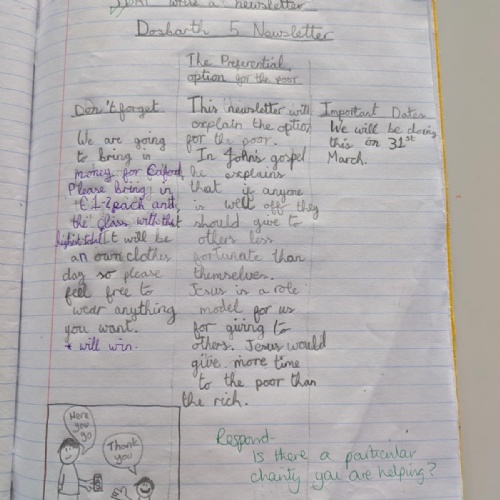 write a newsletter
Dosbarth 5 Newsletter
The Preferential
option for the poor
Don't forget
We are going
to bring in
money for Caford,
Please bring in
£1-2 each and
the class with that
highest total
It will be
an own clothes
day so please
feel free to
wear anything
you want.
* will win.
This newsletter will
explain the option
for the poor.
In John's gospel
he explains
that if anyone
is well off they
should give to
others less
fortunate than
themselves.
Jesus is a role
model for us
for giving to
others. Jesus would
give more time
to the poor than
the rich.
Important Dates
We will be doing
this on 31st
March.
Here
you
go
Thank
you
Respond-
Is there a particular
charity you are helping?